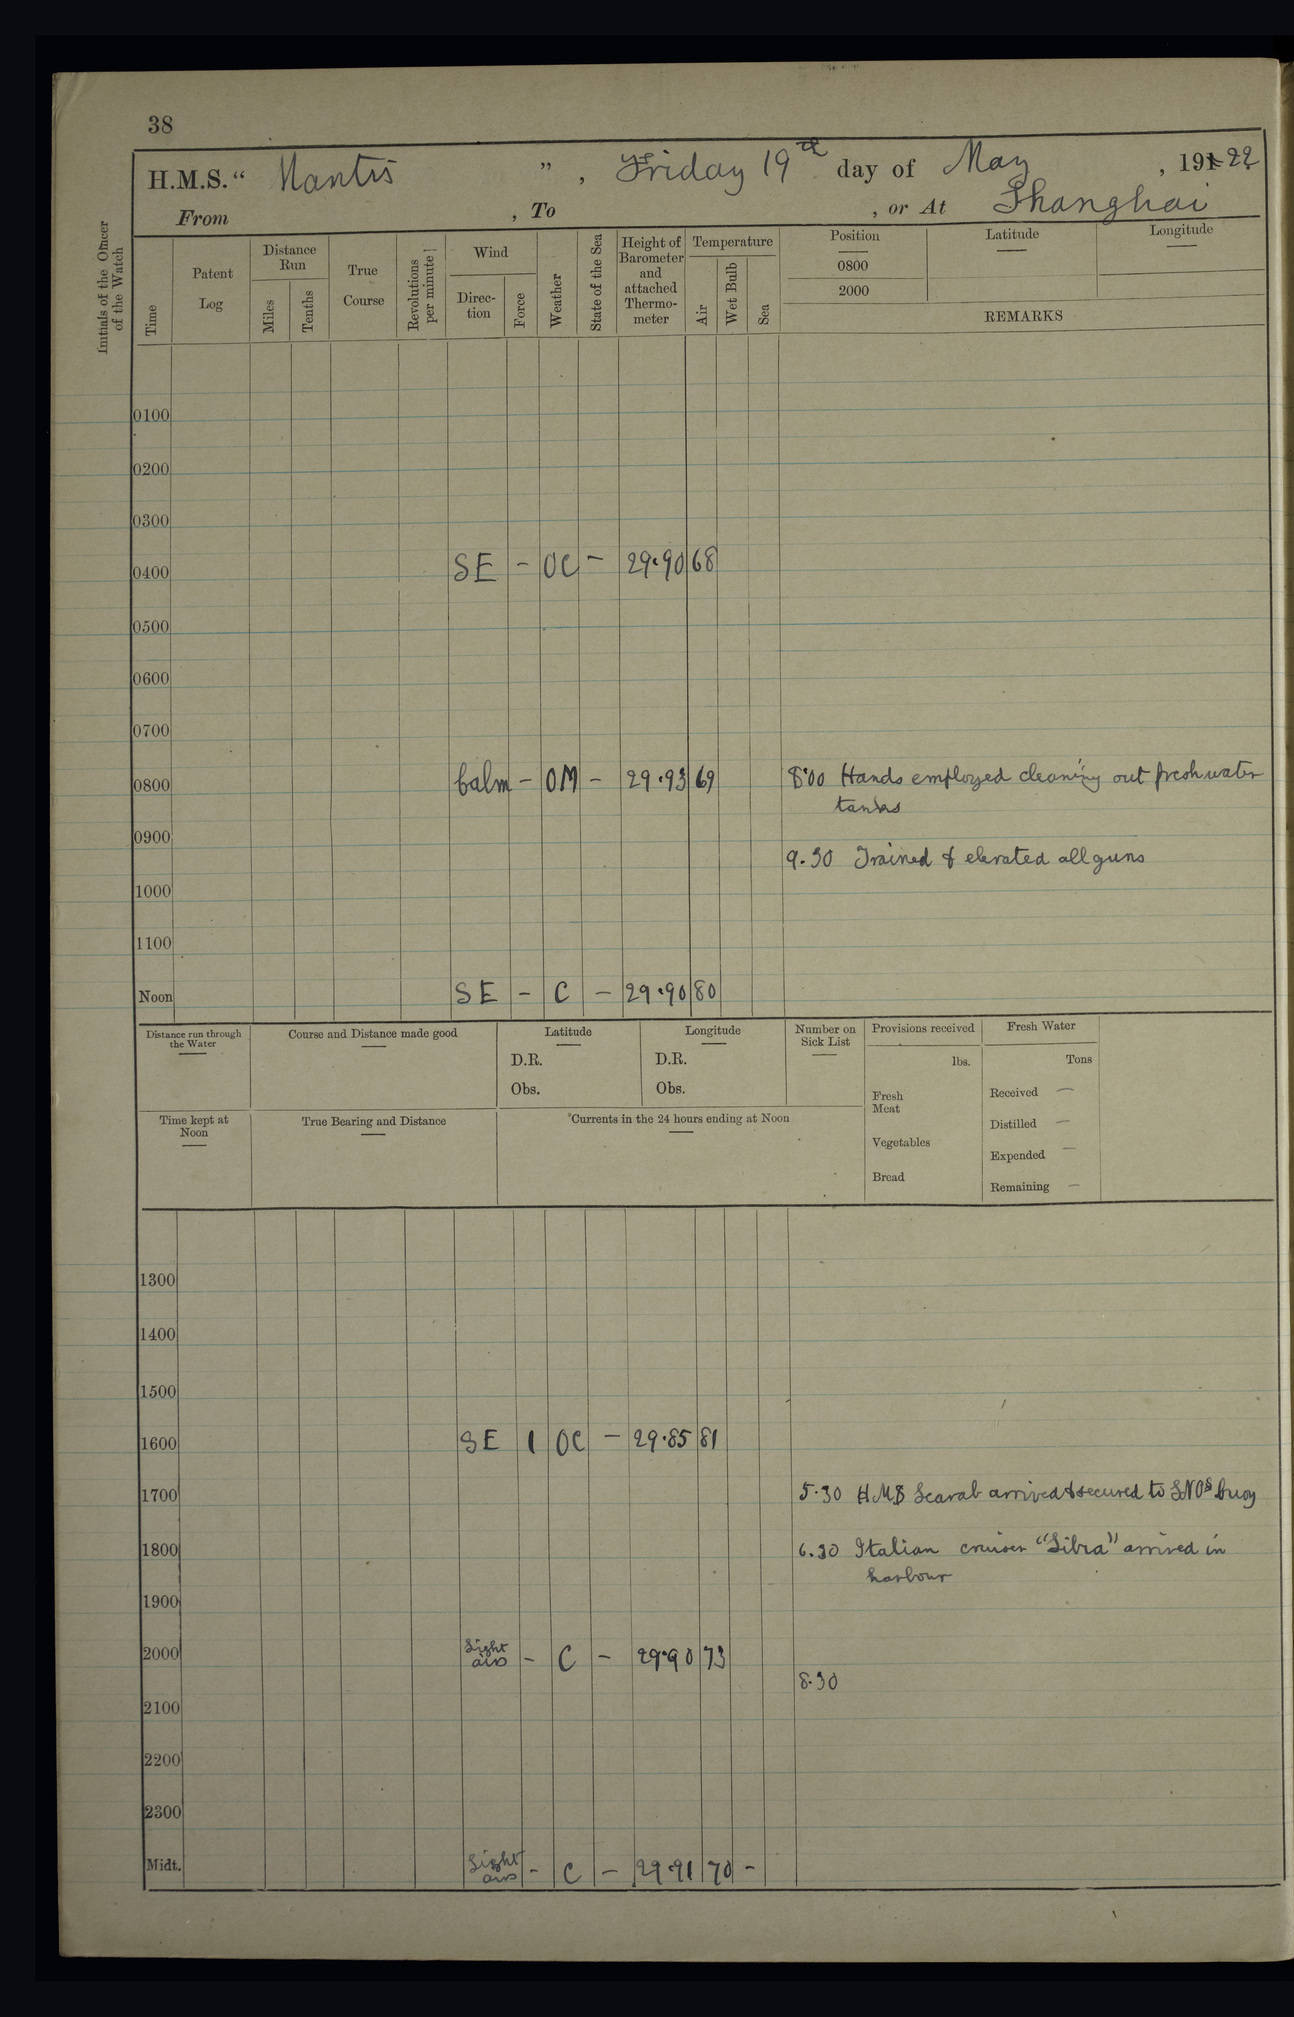 38
H.M.S. “ Mantis ” , Friday 19th day of May , 191 22
From , To , or At Shanghai
Initials of the Officer of the Watch
Time
Patent Log
Distance Run
Miles
Tenths
True Course
Revolutions per minute
Wind
Direc-tion
Force
Weather
State of the Sea
Height of Barometer and attached Thermo-meter
Temperature
Air
Wet Bulb
Sea
Position
0800
2000
Latitude
Longitude
REMARKS
0100
0200
0300
0400 SE - OC - 29.90 68
0500
0600
0700
0800 Calm - OM - 29.93 69 8.00 Hands employed cleaning out freshwater
tanks
0900
9.30 Trained & elevated all guns
1000
1100
Noon SE - C - 29.90 80
Distance run through the Water
Course and Distance made good
Latitude
D.R.
Obs.
Longitude
D.R.
Obs.
Number on Sick List
Provisions received
lbs.
Fresh Meat
Vegetables
Bread
Fresh Water
Tons
Received —
Distilled —
Expended —
Remaining —
Time kept at Noon
True Bearing and Distance
Currents in the 24 hours ending at Noon
1300
1400
1500
1600 SE 1 OC - 29.85 81
1700 5.30 HMS Scarab arrived & secured to SNOs buoy
1800 6.30 Italian cruiser "Libia" arrived in
harbour
1900
2000 Light airs - C - 29.90 73
8.30
2100
2200
2300
Midt. Light airs - C - 29.91 70 -